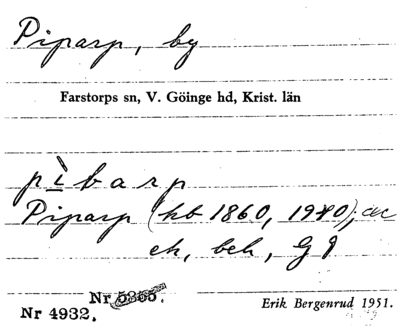 Piparp, by
Farstorps sn, V. Göinge hd, Krist. län
pìbarp
Piparp (hb 1860, 1940),
eh, beh, G
Nr 5265.
Nr 4932.
Erik Bergenrud 1951.